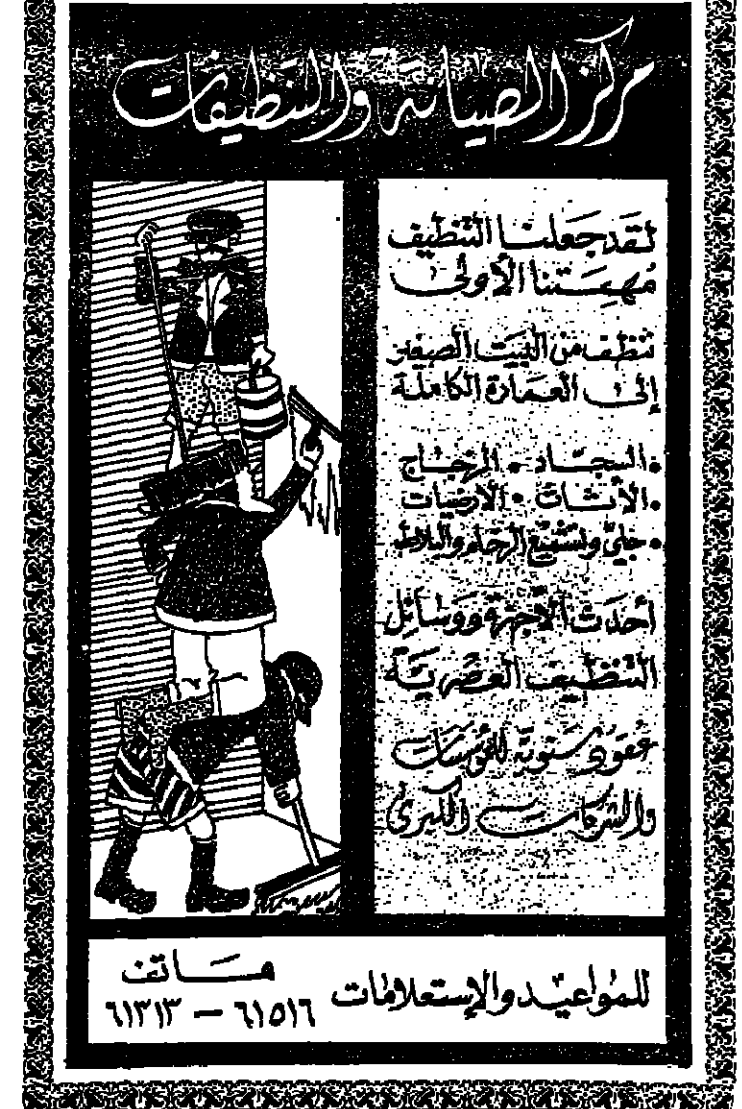 مركز الصيانة والتنظيفات
لقد جعلنا التنظيف
مهمتنا الأولى
ننظف من البيت الصغير
إلى العمارة الكاملة
• السجاد • الزجاج
• الأثاث • الأرضيات
• جلي وتشميع الرخام والبلاط
أحدث الأجهزة ووسائل
التنظيف العصرية
عقود سنوية للمؤسسات
والشركات الكبرى
للمواعيد والإستعلامات
هاتف
٦١٥١٦ — ٦١٣١٣